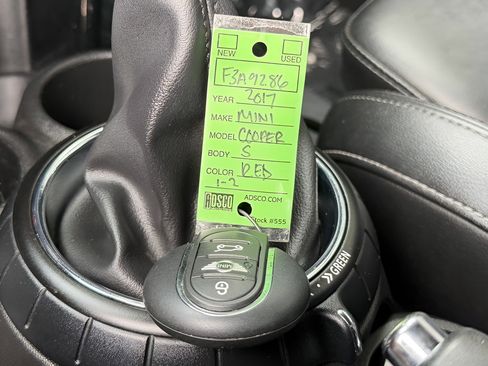 NEW USED
F3A9286
YEAR 2017
MAKE MINI
MODEL COOPER
BODY S
COLOR RED
1-2
ADSCO ADSCO.COM
Stock #555
MINI
GREEN